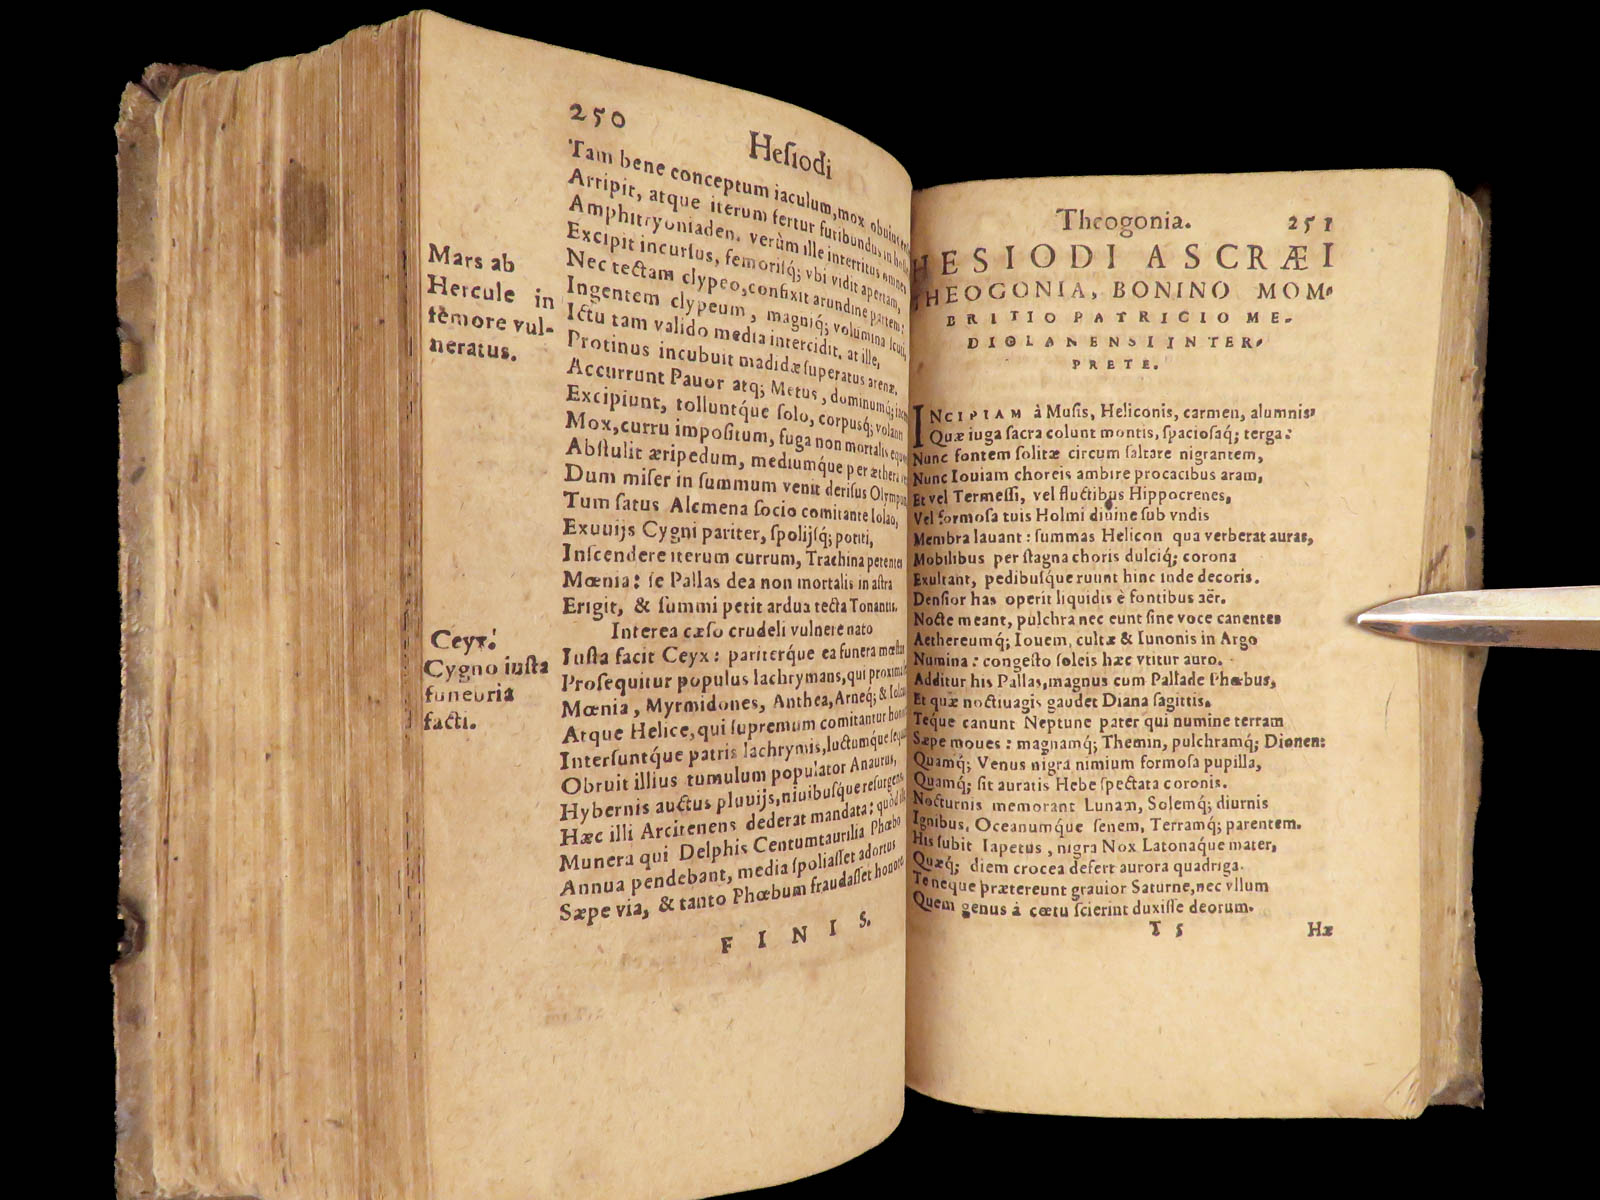 250
Hesiodi
Tam bene conceptum iaculum, mox
Arripit, atque iterum fertur furibundus in
Amphitryoniaden. verùm ille interritus omnes
Excipit incursus, femorisq́; vbi vidit apertam,
Nec tectam clypeo, confixit arundine partem:
Ingentem clypeum, magniq́; volumina scuti,
Ictu tam valido media intercidit. at ille,
Protinus incubuit madidæ superatus arenæ.
Accurrunt Pauor atq; Metus, dominumq́;
Excipiunt, tolluntq́ue solo, corpusq́;
Mox, curru impositum, fuga non mortalis
Abstulit æripedum, mediumq́ue per æthera
Dum miser in summum venit derisus
Tum satus Alcmena socio comitante Iolao,
Exuuijs Cygni pariter, spolijsq́; potiti,
Inscendere iterum currum, Trachina petentes
Mœnia: se Pallas dea non mortalis in astra
Erigit, & summi petit ardua tecta Tonantis.
Interea cæso crudeli vulnere nato
Iusta facit Ceyx: pariterq́ue ea funera mœstus
Prosequitur populus lachrymans, qui proxima
Mœnia, Myrmidones, Anthea, Arneq́; &
Atque Helice, qui supremum comitantur
Intersuntq́ue patris lachrymis, luctumque
Obruit illius tumulum populator Anaurus,
Hybernis auctus pluuijs, niuibusque resurgens.
Hæc illi Arcitenens dederat mandata: quòd
Munera qui Delphis Centumtaurilia Phœbo
Annua pendebant, media spoliasset adortus
Sæpe via, & tanto Phœbum fraudasset honore.
FINIS.
Mars ab
Hercule in
femore vul-
neratus.
Ceyx
Cygno iusta
funebria
facit.
Theogonia.
251
HESIODI ASCRÆI
THEOGONIA, BONINO MOM-
BRITIO PATRICIO ME-
DIOLANENSI INTER-
PRETE.
INCIPIAM à Musis, Heliconis, carmen, alumnis,
Quæ iuga sacra colunt montis, spaciosaq́; terga:
Nunc fontem solitæ circum saltare nigrantem,
Nunc Iouiam choreis ambire procacibus aram,
Et vel Termessi, vel fluctibus Hippocrenes,
Vel formosa tuis Holmi diuine sub vndis
Membra lauant: summas Helicon qua verberat auras,
Mobilibus per stagna choris dulciq́; corona
Exultant, pedibusq́ue ruunt hinc inde decoris.
Densior has operit liquidis è fontibus aër.
Nocte meant, pulchra nec eunt sine voce canentes
Aethereumq́; Iouem, cultæ & Iunonis in Argo
Numina: congesto soleis hæc vtitur auro.
Additur his Pallas, magnus cum Pallade Phœbus,
Et quæ noctiuagis gaudet Diana sagittis,
Teq́ue canunt Neptune pater qui numine terram
Sæpe moues: magnamq́; Themin, pulchramq́; Dionen:
Quamq́; Venus nigra nimium formosa pupilla,
Quamq́; sit auratis Hebe spectata coronis.
Nocturnis memorant Lunam, Solemq́; diurnis
Ignibus, Oceanumq́ue senem, Terramq́; parentem.
His subit Iapetus, nigra Nox Latonaq́ue mater,
Quæq́; diem crocea defert aurora quadriga.
Te neque prætereunt grauior Saturne, nec vllum
Quem genus à cœtu scierint duxisse deorum.
T 5
Hæ